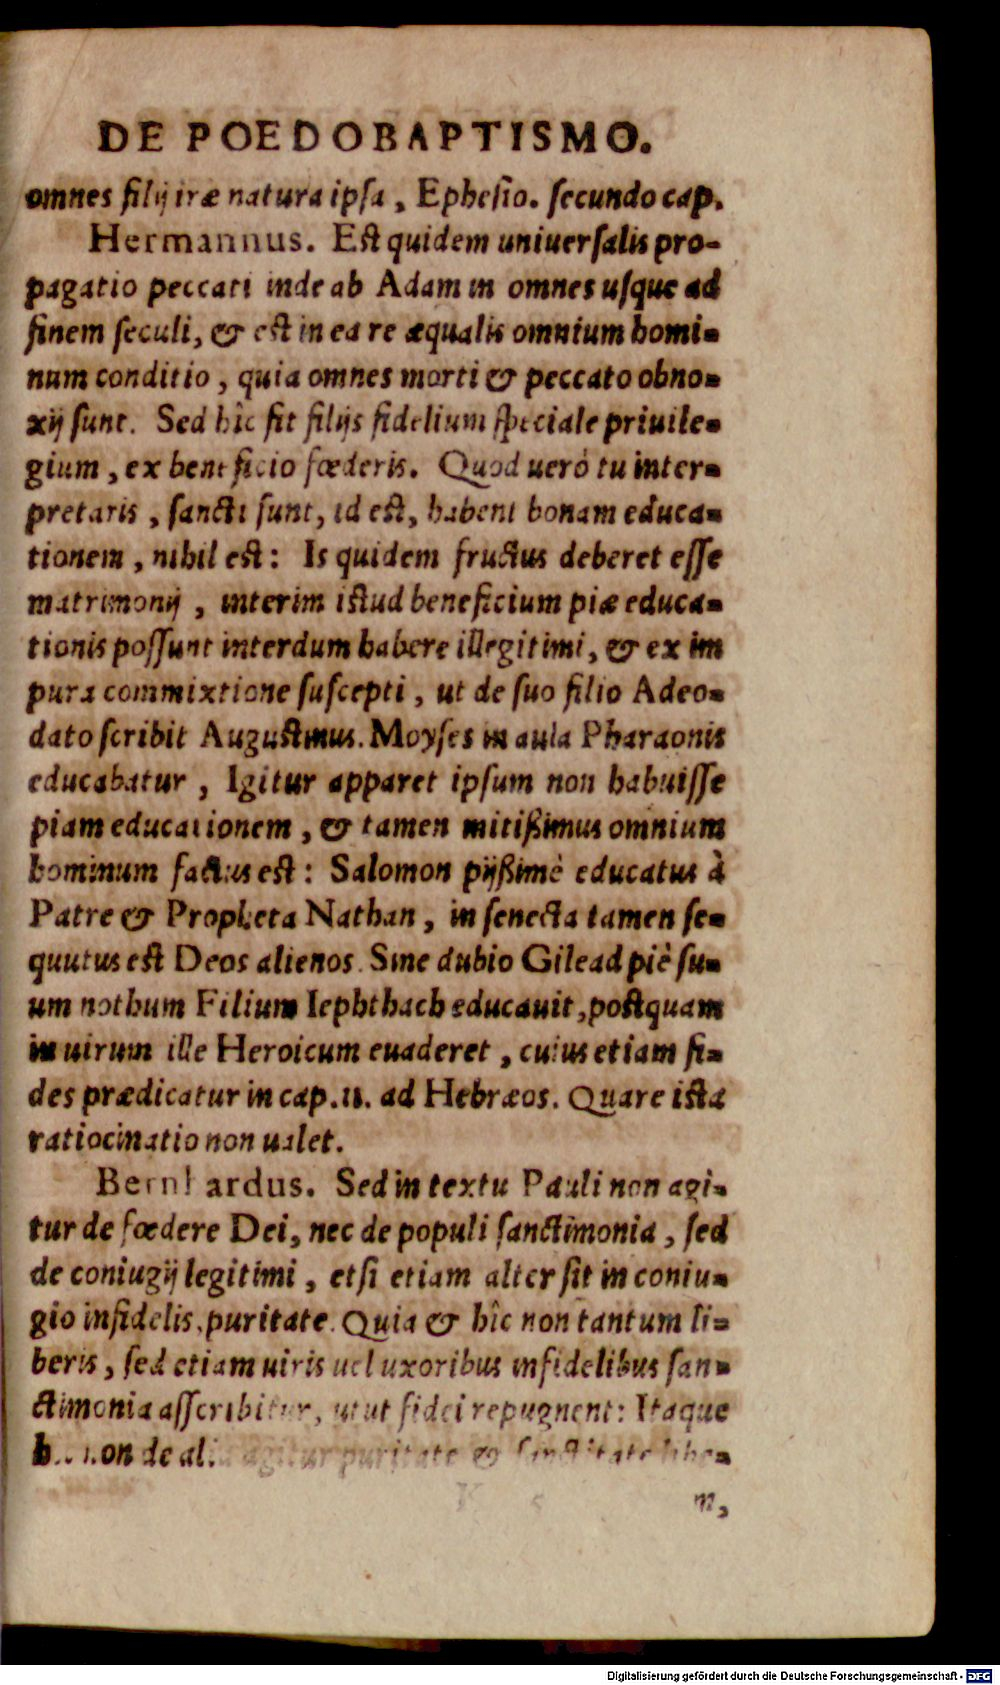 DE POEDOBAPTISMO.
omnes filij iræ natura ipsa, Ephesio. secundo cap.
Hermannus. Est quidem uniuersalis pro-
pagatio peccati inde ab Adam in omnes usque ad
finem seculi, & est in ea re æqualis omnium homi-
num conditio, quia omnes morti & peccato obno-
xij sunt. Sed hîc fit filijs fidelium speciale priuile-
gium, ex beneficio fœderis. Quod uerò tu inter-
pretaris, sancti sunt, id est, habent bonam educa-
tionem, nihil est: Is quidem fructus deberet esse
matrimonij, interim istud beneficium piæ educa-
tionis possunt interdum habere illegitimi, & ex im
pura commixtione suscepti, ut de suo filio Adeo-
dato scribit Augustinus. Moyses in aula Pharaonis
educabatur, Igitur apparet ipsum non habuisse
piam educationem, & tamen mitißimus omnium
hominum factus est: Salomon pijßimè educatus à
Patre & Propheta Nathan, in senecta tamen se-
quutus est Deos alienos. Sine dubio Gilead piè su-
um nothum Filium Iephthach educauit, postquam
in uirum ille Heroicum euaderet, cuius etiam fi-
des prædicatur in cap. 11. ad Hebræos. Quare ista
ratiocinatio non ualet.
Bernhardus. Sed in textu Pauli non agi-
tur de fœdere Dei, nec de populi sanctimonia, sed
de coniugij legitimi, etsi etiam alter sit in coniu-
gio infidelis, puritate. Quia & hîc non tantum li-
beris, sed etiam uiris uel uxoribus infidelibus san-
ctimonia asscribitur, utut fidei repugnent: Itaque
non de alia agitur puritate & sanctitate libe-
K 5
Digitalisierung gefördert durch die Deutsche Forschungsgemeinschaft - DFG